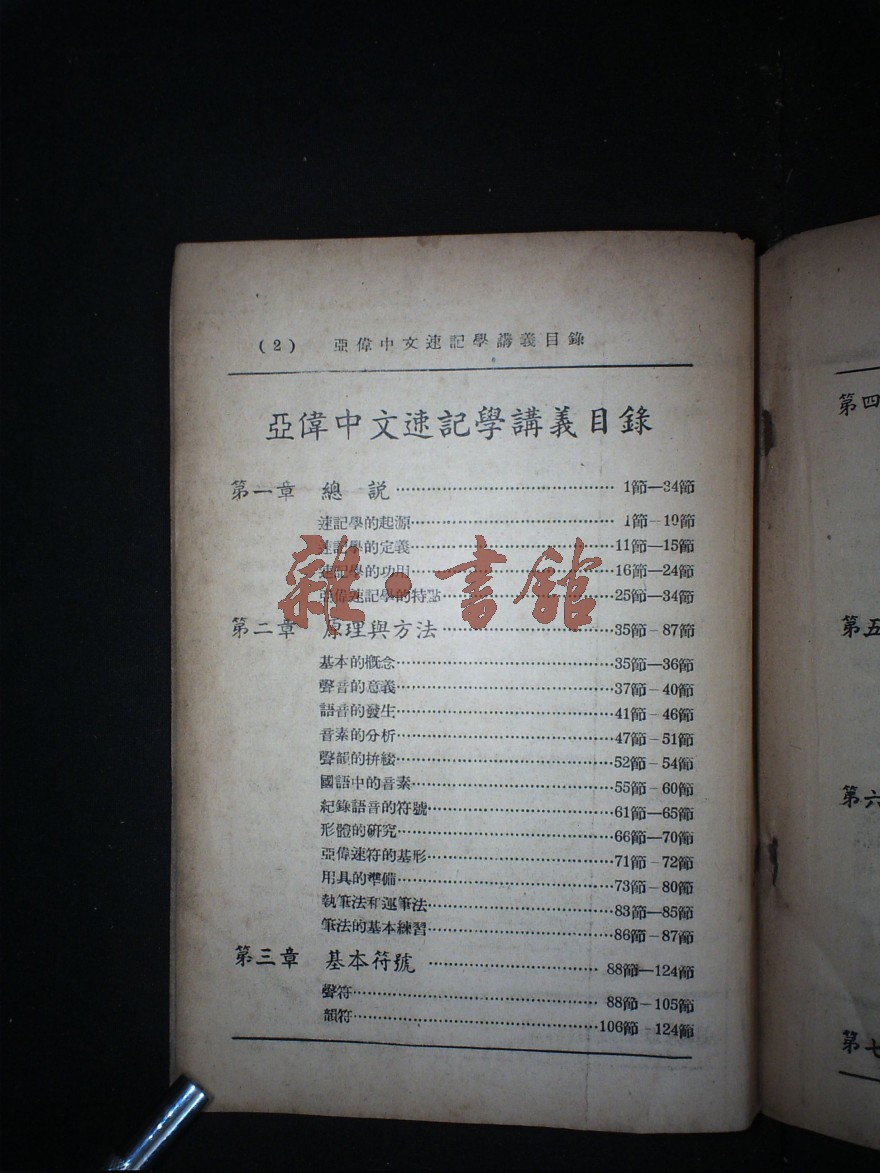 (2) 亞偉中文速記學講義目錄
亞偉中文速記學講義目錄
第一章 總 説 1節—34節
速記學的起源 1節—10節
速記學的定義 11節—15節
速記學的功用 16節—24節
亞偉速記學的特點 25節—34節
雜·書館
第二章 原理與方法 35節—87節
基本的概念 35節—36節
聲音的意義 37節—40節
語音的發生 41節—46節
音素的分析 47節—51節
聲韻的拚綴 52節—54節
國語中的音素 55節—60節
紀錄語音的符號 61節—65節
形體的研究 66節—70節
亞偉速符的基形 71節—72節
用具的準備 73節—80節
執筆法和運筆法 83節—85節
筆法的基本練習 86節—87節
第三章 基本符號 88節—124節
聲符 88節—105節
韻符 106節—124節
第四
第五
第六
第七